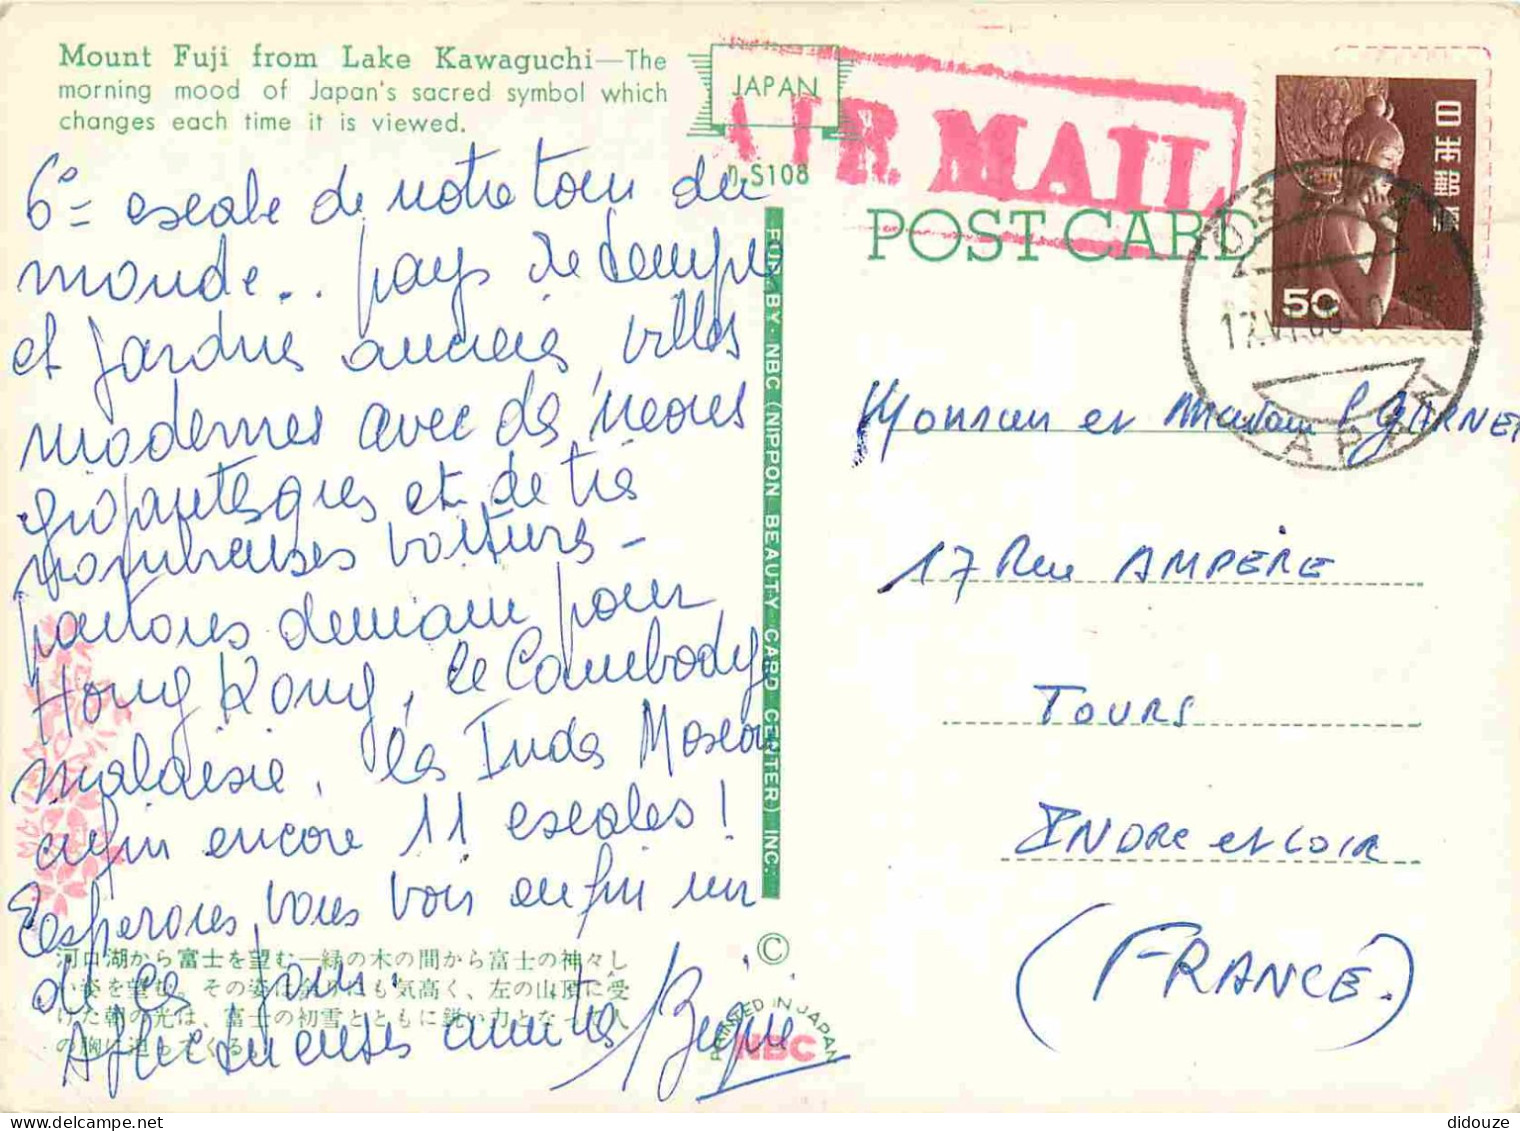 Mount Fuji from Lake Kawaguchi—The
morning mood of Japan's sacred symbol which
changes each time it is viewed.
JAPAN
D-S108
AIR MAIL
POST CARD
日本郵便
50
OSAKA
17.VI.
JAPAN
6e escale de notre tour du
monde.. pays de temple
et jardins anciens, villes
modernes avec des néons
gigantesques et de très
nombreuses voitures -
partons demain pour
Hong Kong, le Cambodge
malaisie, les Indes Moscou
enfin encore 11 escales!
Espérons vous voir enfin un
de ces jours.
Affectueuses amitiés
Monsieur et Madame P GARNET
17 Rue AMPÈRE
TOURS
INDRE et LOIR
(FRANCE.)
PUB. BY. NBC (NIPPON BEAUTY CARD CENTER) INC.
河口湖から富士を望む—緑の木の間から富士の神々し
い姿を望む。その姿は余りにも気高く、左の山頂に受
けた朝の光は、富士の初雪とともに鋭い力となって人
の胸に迫ってくる。
©
PRINTED IN JAPAN
NBC
didouze